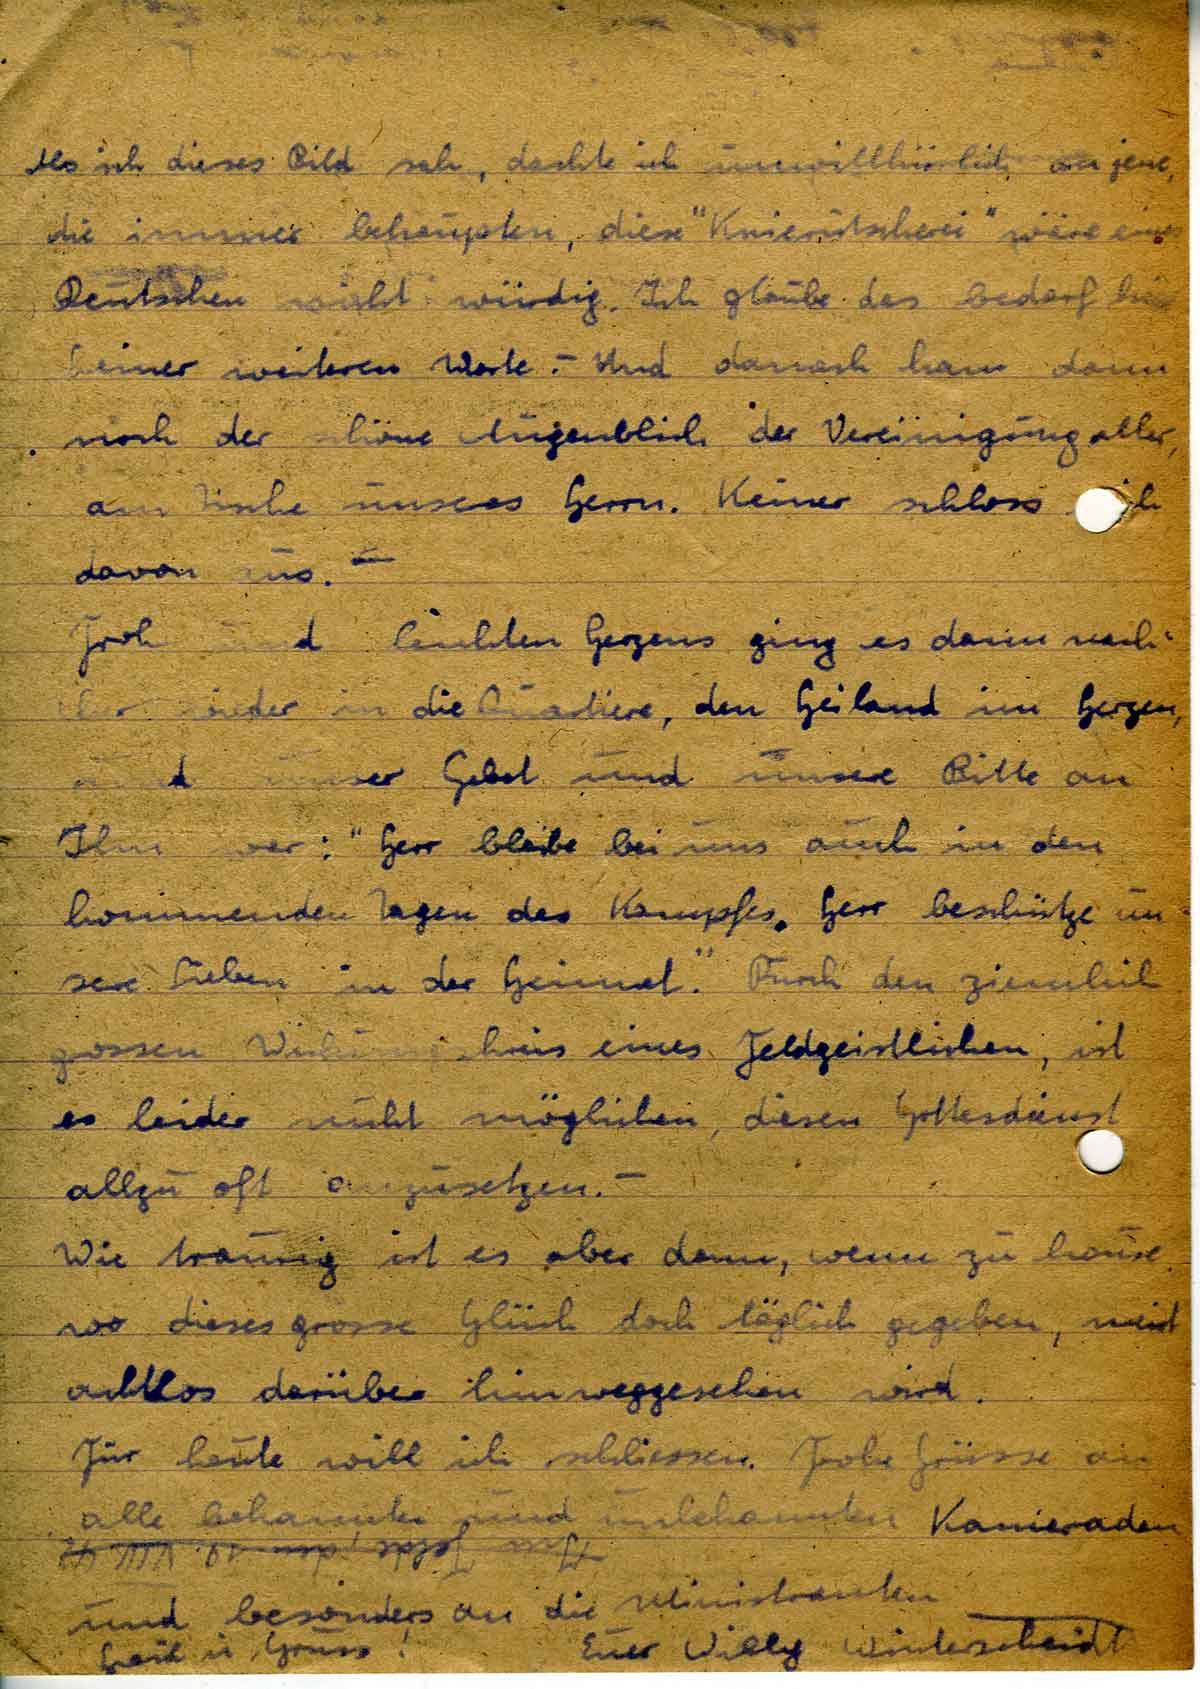 Als ich dieses Bild sah, dachte ich unwillkürlich an jene,
die immer behaupten, diese "Knierutscherei" wäre eines
Deutschen nicht würdig. Ich glaube das bedarf
keiner weiteren Worte. – Und danach kam dann
noch der schöne Augenblick der Vereinigung aller,
am Tische unseres Herrn. Keiner schloss sich
davon aus. –
Froh und leichten Herzens ging es dann nach-
her wieder in die Quartiere, den Heiland im Herzen,
und unser Gebet und unsere Bitte an
Ihn war: "Herr bleibe bei uns auch in den
kommenden Tagen des Kampfes. Herr beschütze un-
sere Lieben in der Heimat." Durch den ziemlich
grossen Wirkungskreis eines Feldgeistlichen, ist
es leider nicht möglichen, diesen Gottesdienst
allzu oft anzusetzen. –
Wie traurig ist es aber dann, wenn zu hause
wo dieses grosse Glück doch täglich gegeben, meist
achtlos darüber hinweggesehen wird.
Für heute will ich schliessen. Frohe Grüsse an
alle bekannten und unbekannten Kameraden
und besonders an die Ministranten
Euer Willy Winterscheidt